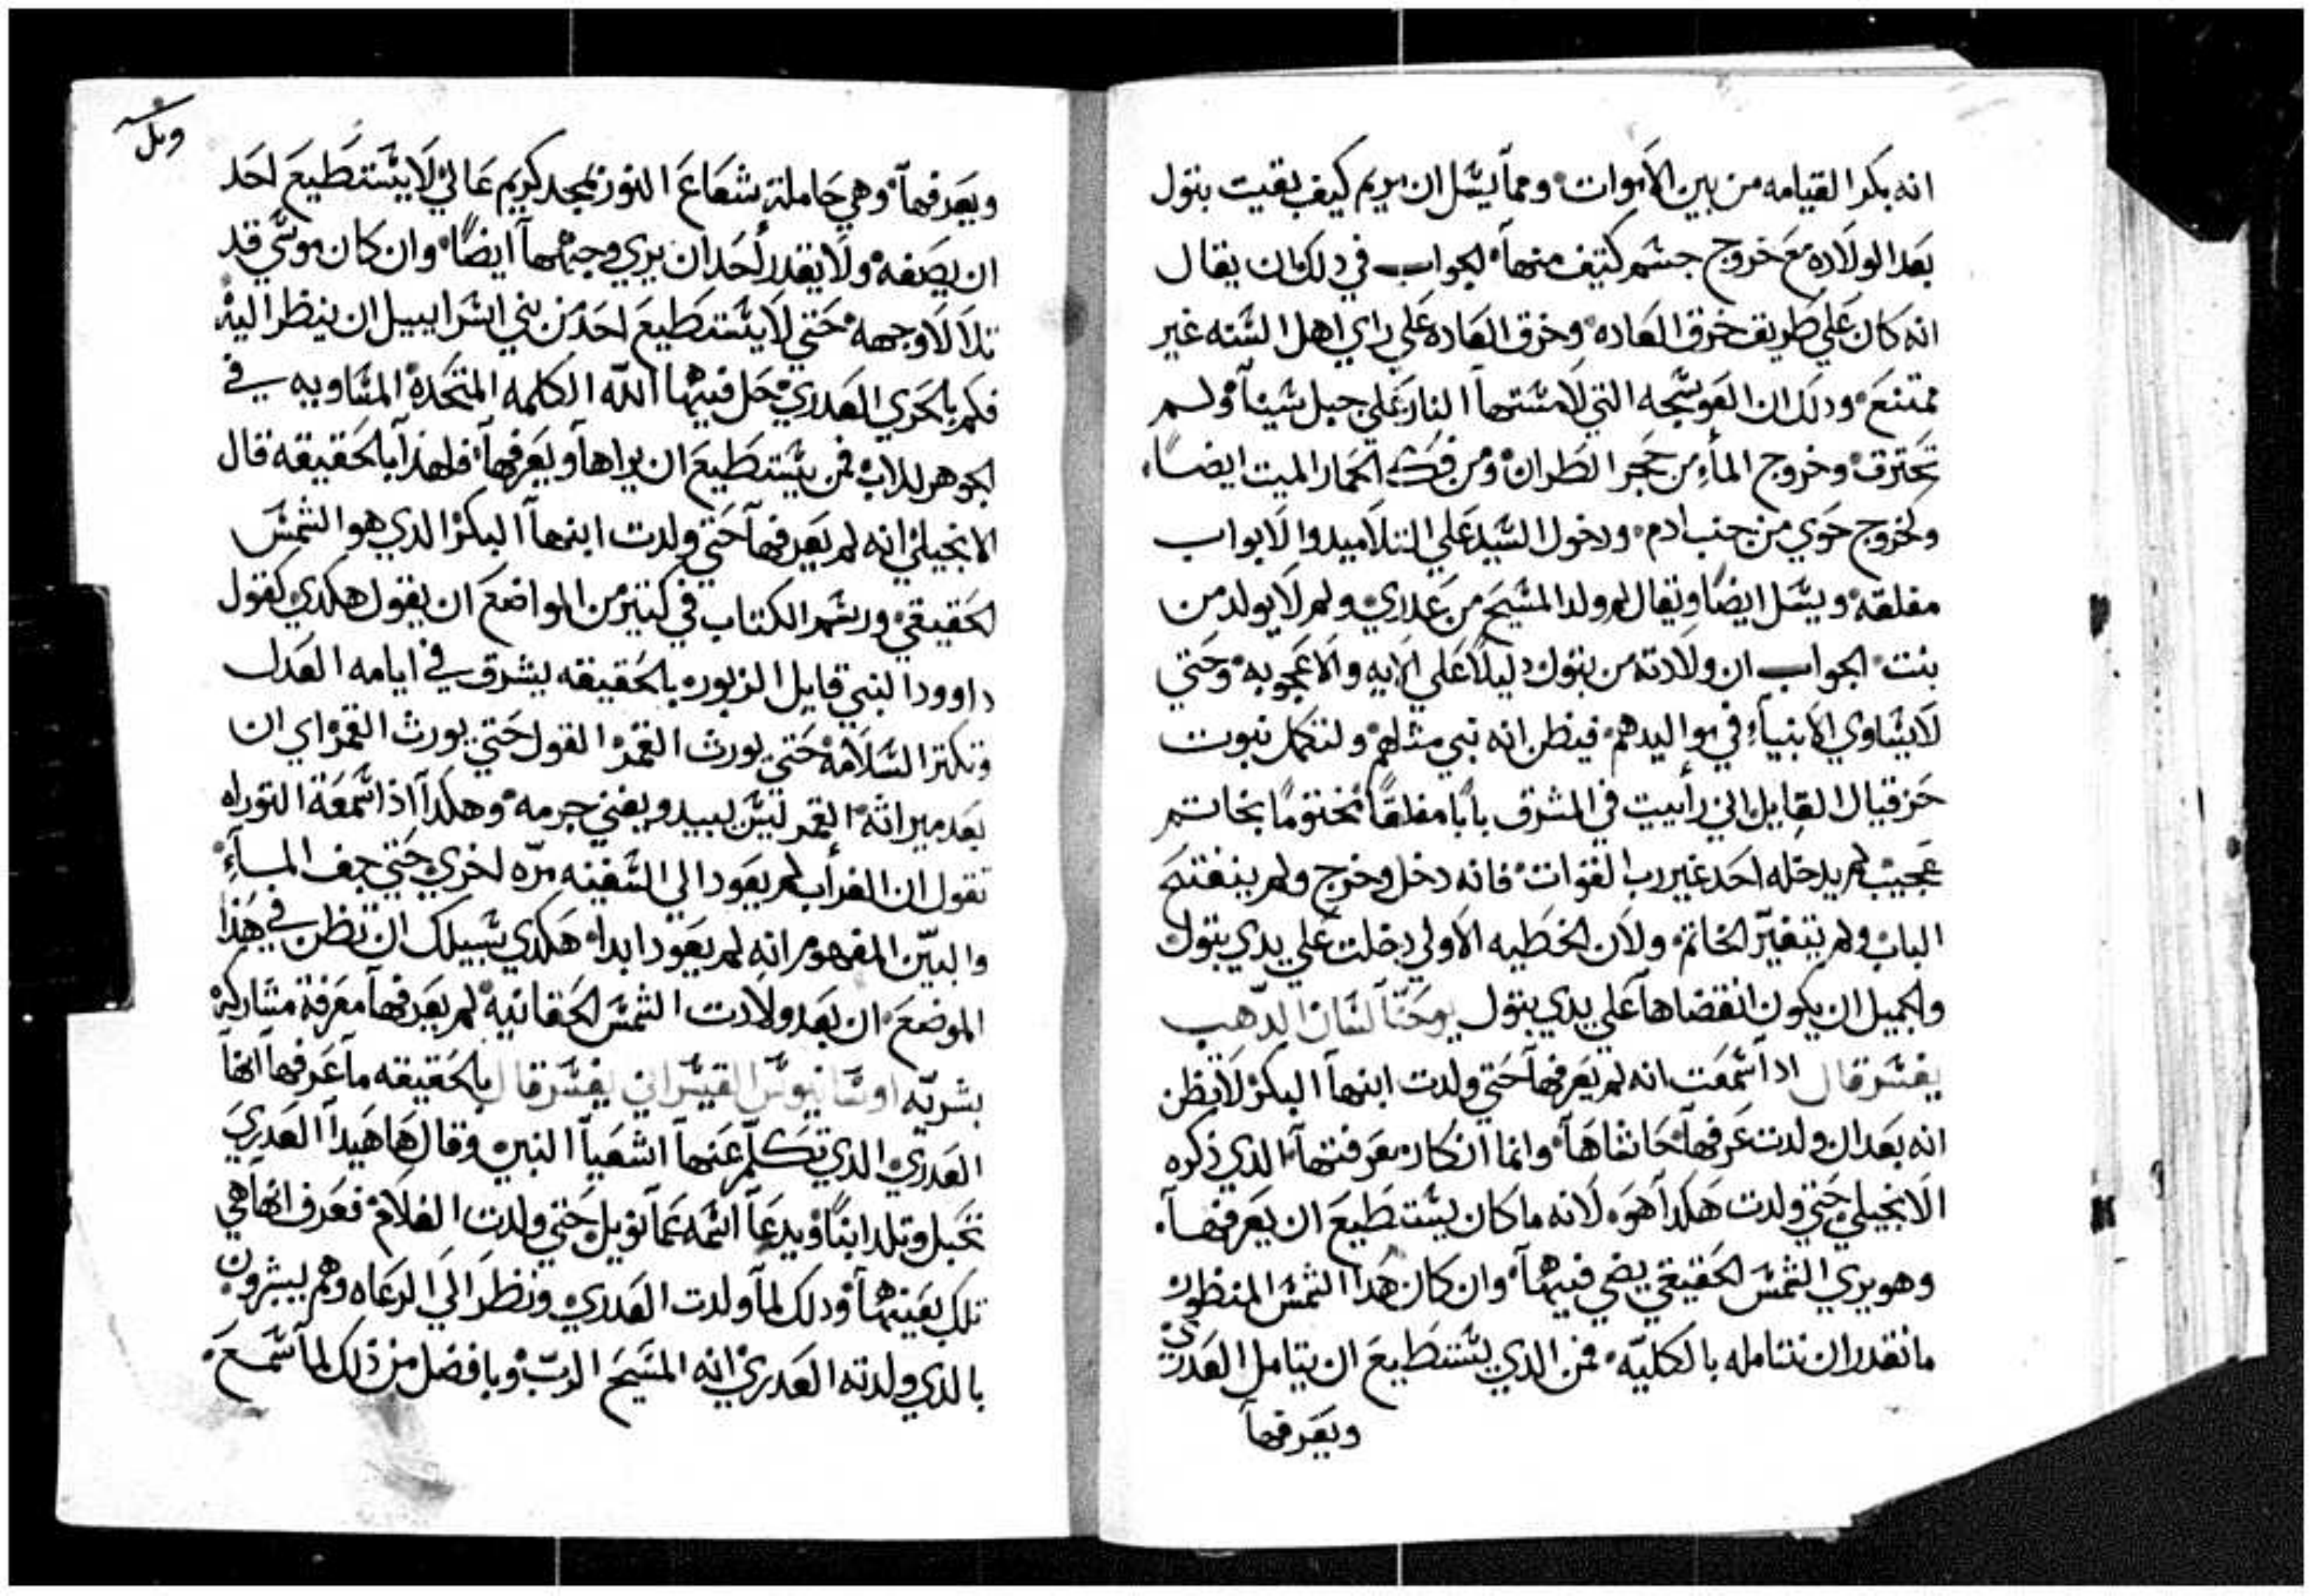 انه بكر القيامه من بين الاموات ومما يسل ان مريم كيف بقيت بتول
بعد الولاده مع خروج جسم كتيف منها الجواب في دلك ان يقال
انه كان علي طريق خرق العاده وخرق العاده علي راي اهل السنه غير
ممتنع ودلك ان العوسجه التي لامستها النار علي جبل سينا ولم
تحترق وخروج الماء من حجر الطران ومن فك الحمار الميت ايضا
وكخروج حوي من جنب ادم ودخول السيد علي التلاميد والابواب
مغلقه ويسل ايضا ويقال لم ولد المسيح من عدري ولم لا يولد من
بنت الجواب ان ولادته من بتول دليلا علي الايه والاعجوبه وحتي
لا يساوي الانبياء في مواليدهم فيظن انه نبي مثلهم ولتكمل نبوت
حزقيال القايل اني رأييت في المشرق بابا مغلقا مختوما بخاتم
عجيب لم يدخله احد غير رب القوات فانه دخل وخرج ولم ينفتح
الباب ولم يتغير الخاتم ولان الخطيه الاولي دخلت علي يدي بتول
والجميل ان يكون انقضاها علي يدي بتول يوحنا لسان الدهب
يفسر قال ادا سمعت انه لم يعرفها حتي ولدت ابنها البكر لا تظن
انه بعد ان ولدت عرفها حاشاها وانما ان كان معرفتها الدي ذكره
الانجيلي حتي ولدت هكدا هو لانه ما كان يستطيع ان يعرفها
وهو يري الشمس الحقيقي يضي فيها وان كان هدا الشمس المنظور
ما نقدر ان نتامله بالكليه فمن الدي يستطيع ان يتامل العدري
ويعرفها
وبعرفها وهي حاملة شعاع النور بمجد كريم عالي لا يستطيع احد
ان يصفه ولا يقدر احد ان يري وجهها ايضا وان كان موسي قد
تلالا وجهه حتي لا يستطيع احد من بني اسراييل ان ينظر اليه
فكم بالحري العدري حل فيها الله الكلمه المتحده المساويه في
الجوهر للاب فمن يستطيع ان يراها ويعرفها فلهذا بالحقيقه قال
الانجيلي انه لم يعرفها حتي ولدت ابنها البكر الدي هو الشمس
الحقيقي ورسم الكتاب في كتير من المواضع ان يقول هكدي كقول
داوود النبي قايل الزبور بالحقيقه يشرق في ايامه العدل
وتكتر السلامه حتي يورث القمر القول حتي يورث القمر اي ان
بعد ميراثه القمر ليس يبيد ويفني جرمه وهكدا اذا سمعة التوراه
تقول ان الغراب لم يعود الي السفينه مره اخري حتي جف الماء
والبين المفهوم انه لم يعود ابدا هكدي سبيلك ان تظن في هذا
الموضع ان بعد ولادت الشمس الحقانيه لم يعرفها معرفة مشاركة
بشريه اوسانيوس القيسراني يفسر قال بالحقيقه ما عرفها انها
العدري الدي تكلم عنها اشعيا النبي وقال ها هيدا العدري
تحبل وتلد ابنا ويدعا اسمه عمانويل حتي ولدت الغلام فعرف انها هي
تلك بعينها ودلك لما ولدت العدري ونظر الي الرعاه وهم يبشرون
بالدي ولدته العدري انه المسيح الرب وبافضل من ذلك لما سمع